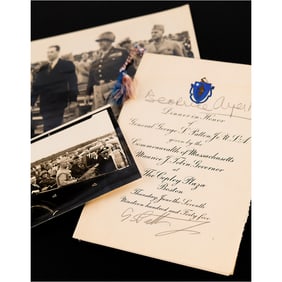 Beatrice Ayer
Dinner in Honor
of
General George S. Patton Jr. U.S.A.
given by the
Commonwealth of Massachusetts
Maurice J. Tobin, Governor
at
The Copley Plaza
Boston
Thursday June the Seventh
Nineteen hundred and Forty five
G S Patton Jr